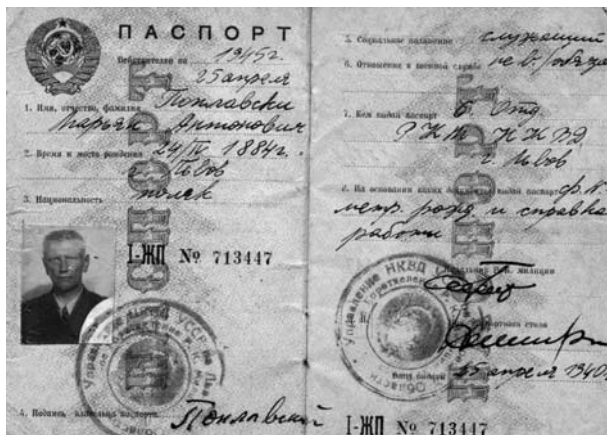 ПАСПОРТ
Действителен по 1945 г.
25 апреля
1. Имя, отчество, фамилия Поплавски
Марьян Антонович
2. Время и место рождения 24/IV 1884 г.
г. Львов
3. Национальность поляк
I-ЖП № 713447
4. Подпись владельца паспорта
Поплавский
5. Социальное положение служащий
6. Отношение к военной службе не в/обяза
7. Кем выдан паспорт 6. Отд.
РКМ НКВД
г. Львов
8. На основании каких документов выдан паспорт
метр. рожд. и справка
работы
Начальник милиции
паспортного стола
25 апреля 1940
I-ЖП № 713447
Управление НКВД